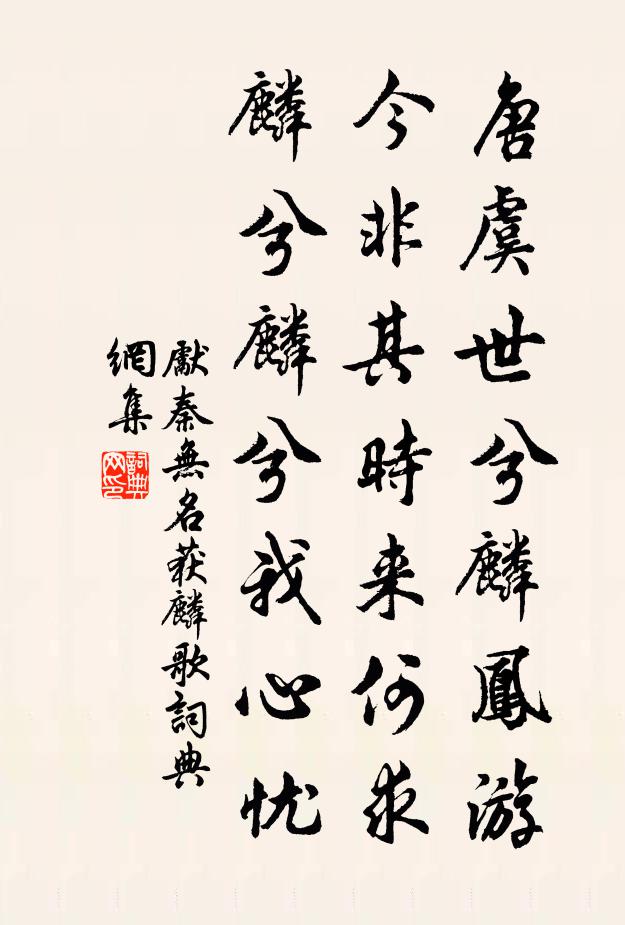 唐虞世兮麟鳳游
今非其時来何求
麟兮麟兮我心忧
獻秦無名获麟歌詞典
網集
詞典
网印